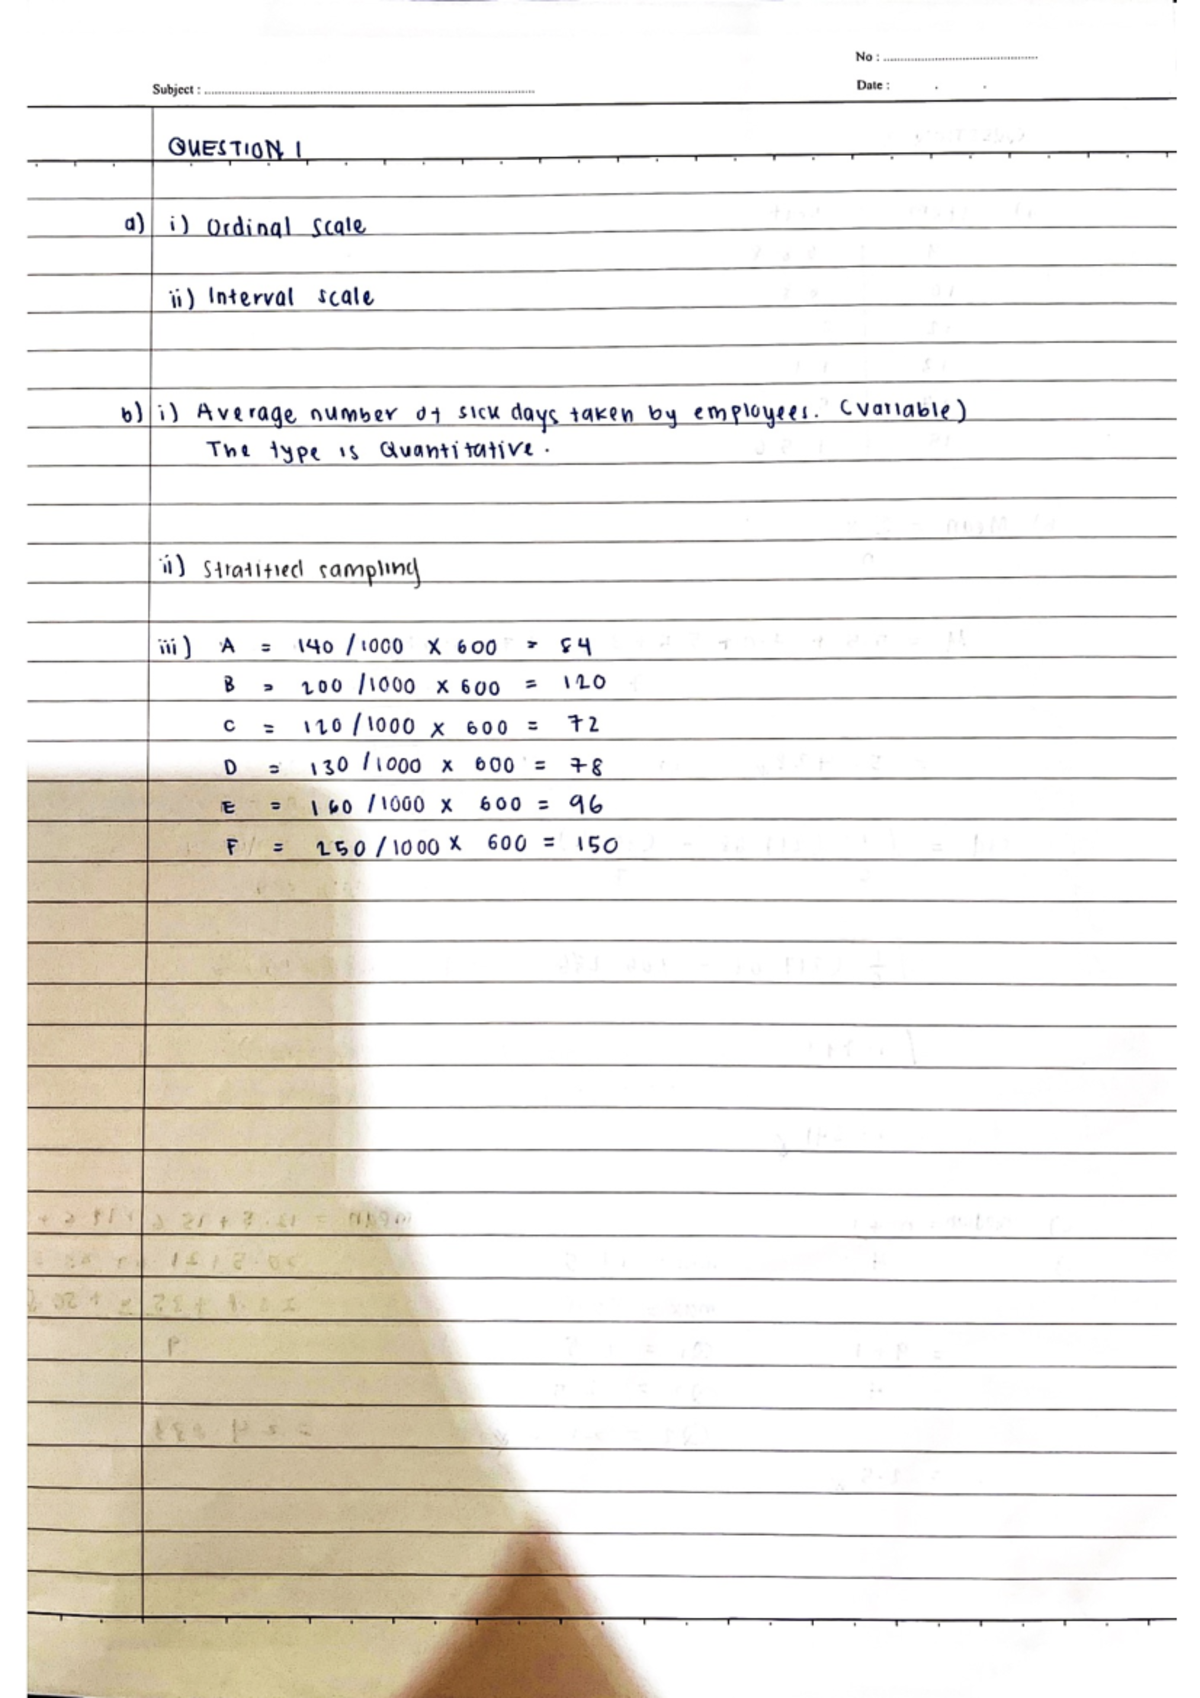 No :
Subject :
Date :
QUESTION 1
a) i) Ordinal scale
ii) Interval scale
b) i) Average number of sick days taken by employees. (variable)
The type is Quantitative.
ii) Stratified sampling
iii) A = 140 / 1000 X 600 = 84
B = 200 / 1000 X 600 = 120
C = 120 / 1000 X 600 = 72
D = 130 / 1000 X 600 = 78
E = 160 / 1000 X 600 = 96
F = 250 / 1000 X 600 = 150